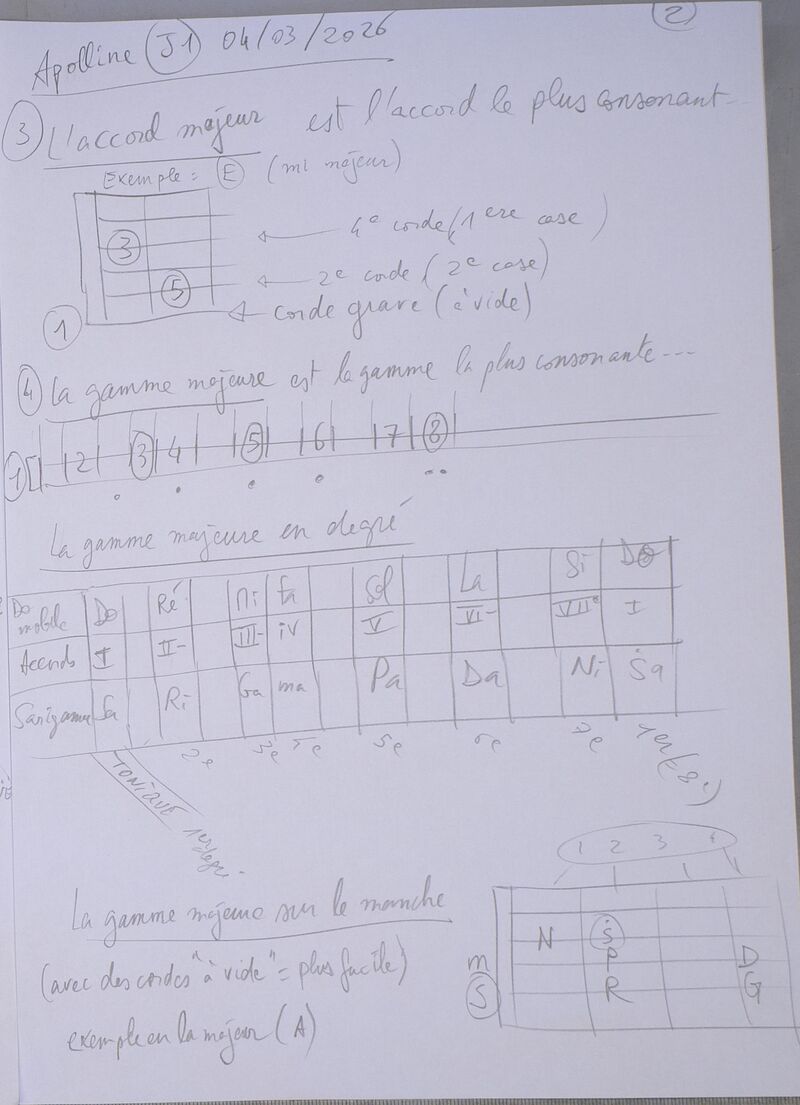 2
Apolline (J1) 04/03/2026
3 L'accord majeur est l'accord le plus consonant...
Exemple = E (mi majeur)
3 ← 4e corde (1ere case)
5 ← 2e corde (2e case)
1 ← corde grave (à vide)
4 La gamme majeure est la gamme la plus consonante...
1 2 3 4 5 6 7 8
La gamme majeure en degré
Do mobile Do Ré Mi fa Sol La Si Do
Accords I II- III- iv V VI- VII° I
Sarigama Sa Ri Ga ma Pa Da Ni Sa
2e 3e 5e 6e 7e 1er (8
TONIQUE 1er degré
La gamme majeure sur le manche
(avec des cordes "à vide" = plus facile)
exemple en la majeur (A)
1 2 3 4
N S
m P D
S R G